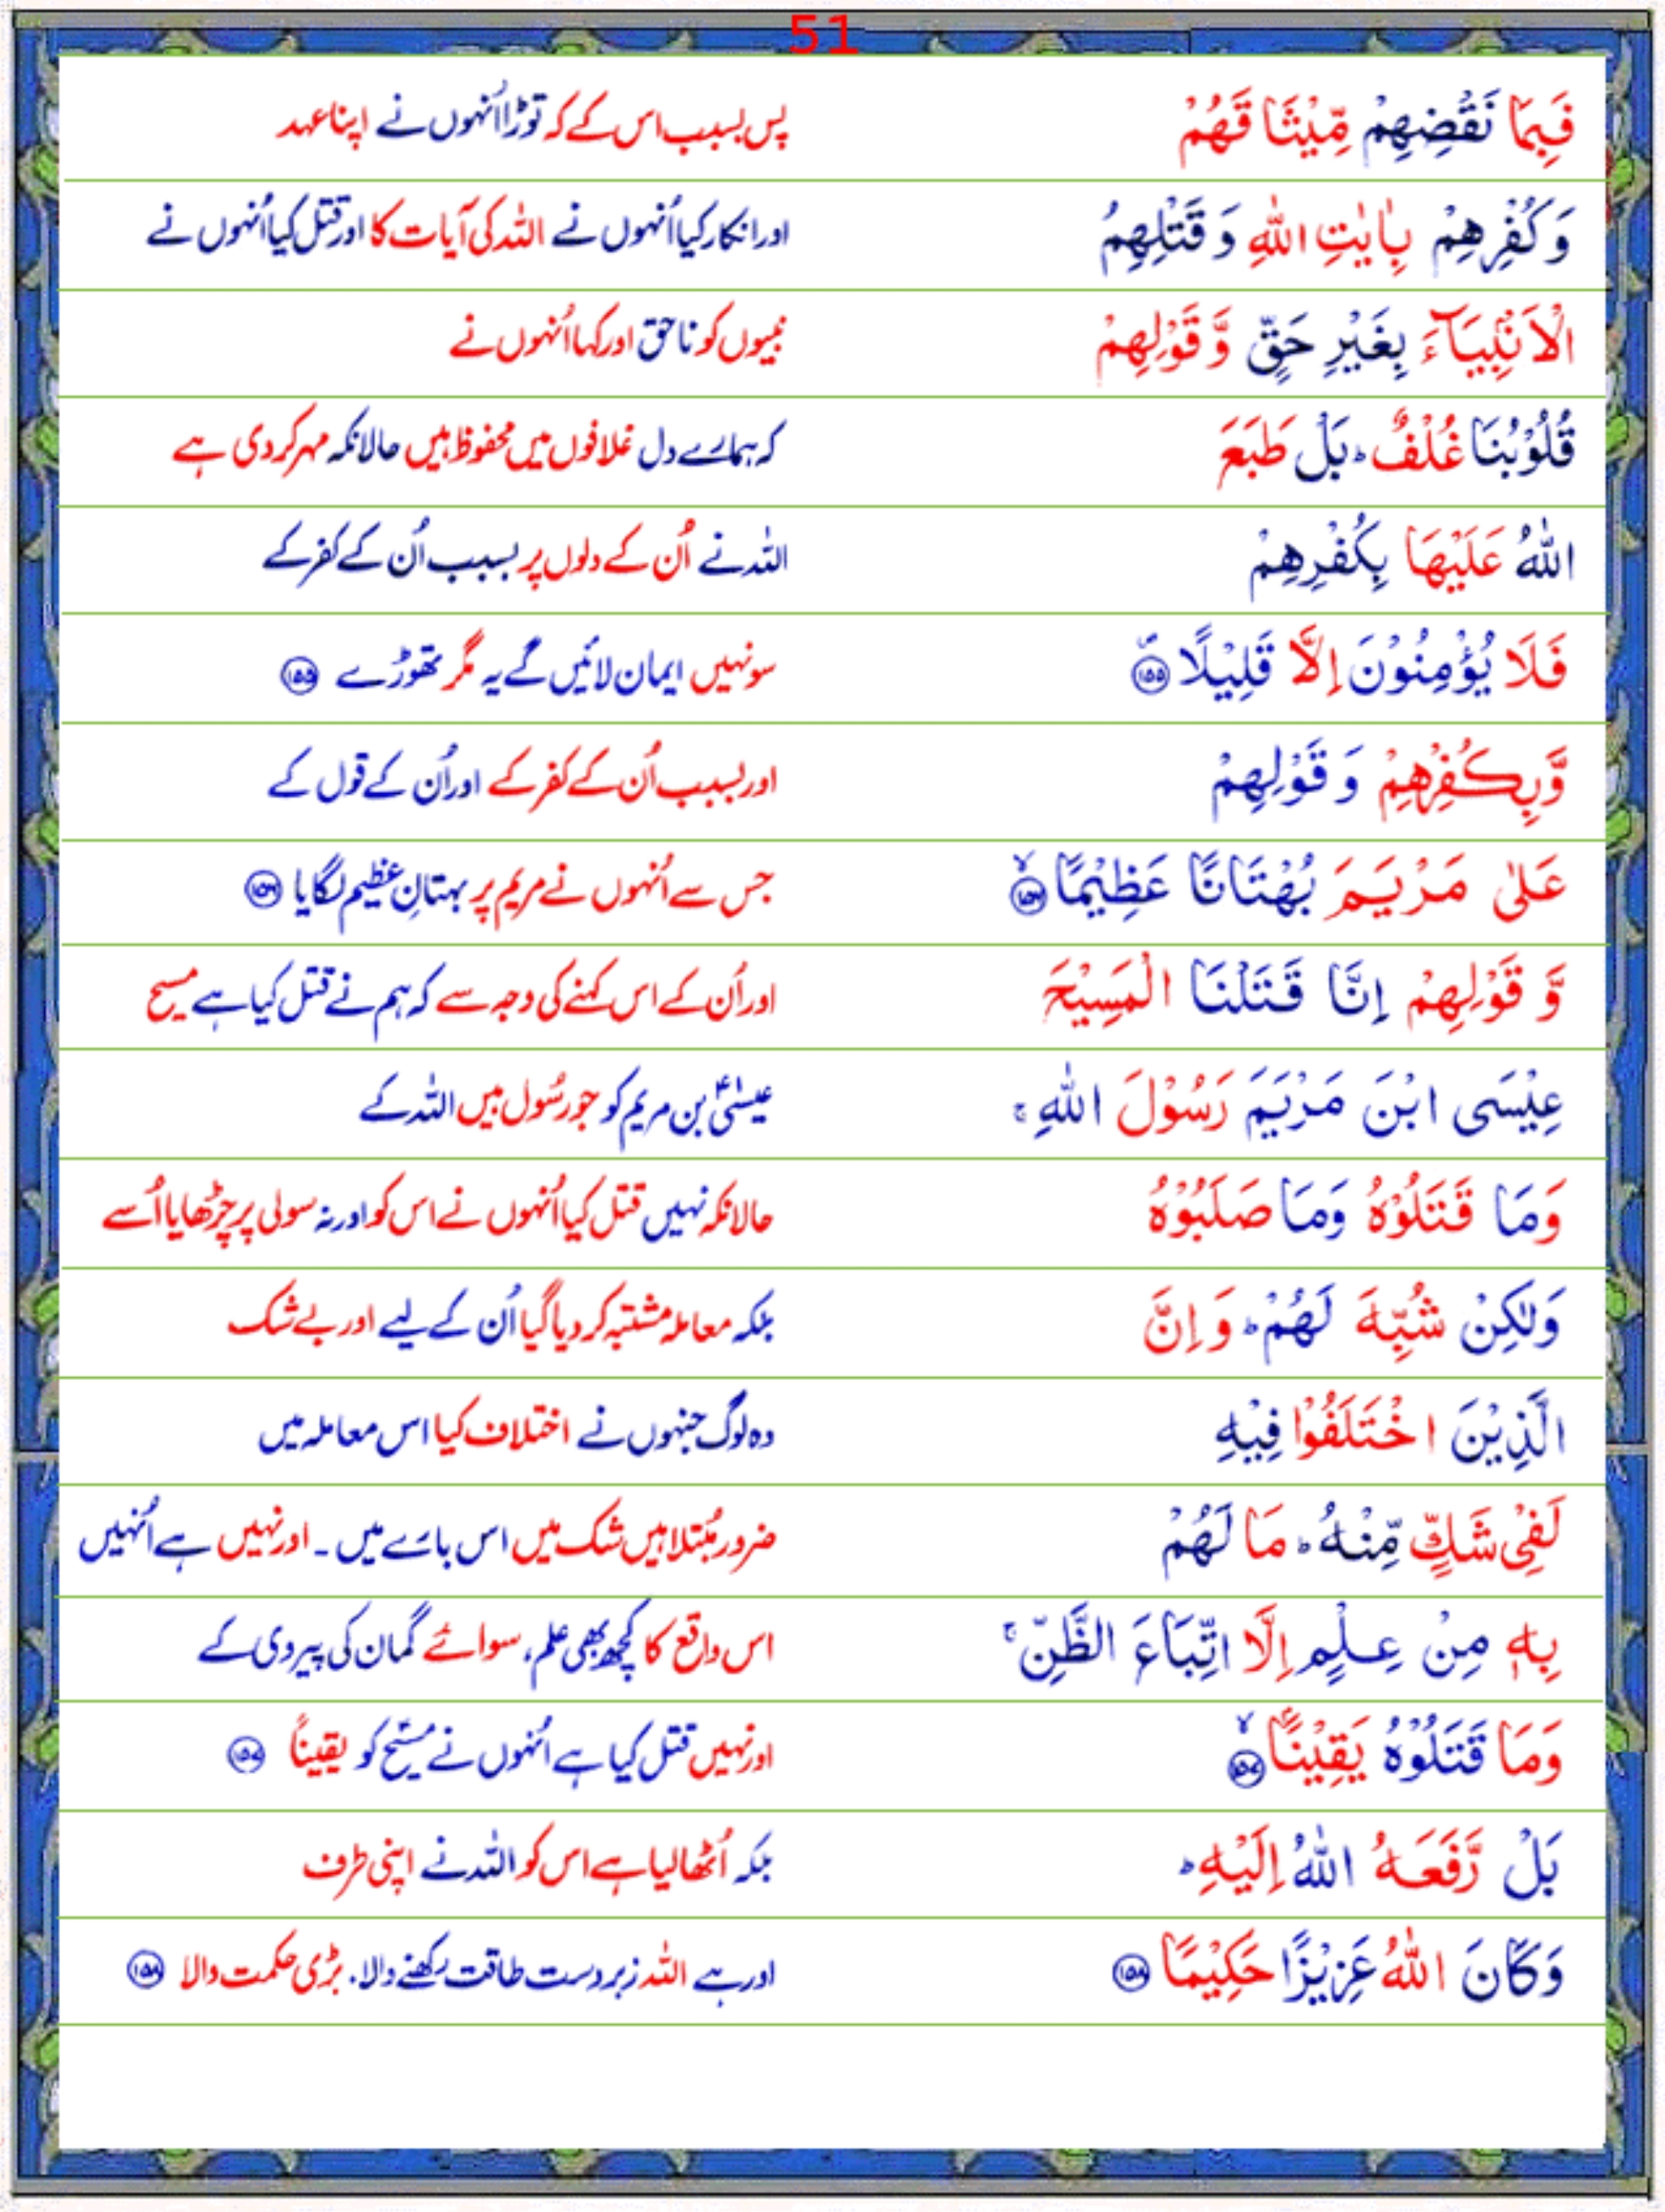 51
فَبِمَا نَقْضِهِمْ مِّيْثَاقَهُمْ پس بسبب اس کے کہ توڑا اُنہوں نے اپنا عہد
وَكُفْرِهِمْ بِاٰيٰتِ اللّٰهِ وَقَتْلِهِمُ اور انکار کیا اُنہوں نے اللہ کی آیات کا اور قتل کیا اُنہوں نے
الْاَنْۢبِيَآءَ بِغَيْرِ حَقٍّ وَّقَوْلِهِمْ نبیوں کو ناحق اور کہا اُنہوں نے
قُلُوْبُنَا غُلْفٌ ؕ بَلْ طَبَعَ کہ ہمارے دل غلافوں میں محفوظ ہیں حالانکہ مہر کر دی ہے
اللّٰهُ عَلَيْهَا بِكُفْرِهِمْ اللہ نے اُن کے دلوں پر بسبب اُن کے کفر کے
فَلَا يُؤْمِنُوْنَ اِلَّا قَلِيْلًا ۪ ۝۱۵۵ سو نہیں ایمان لائیں گے یہ مگر تھوڑے ۝۱۵۵
وَّبِكُفْرِهِمْ وَقَوْلِهِمْ اور بسبب اُن کے کفر کے اور اُن کے قول کے
عَلٰى مَرْيَمَ بُهْتَانًا عَظِيْمًا ۙ ۝۱۵۶ جس سے اُنہوں نے مریم پر بہتانِ عظیم لگایا ۝۱۵۶
وَّقَوْلِهِمْ اِنَّا قَتَلْنَا الْمَسِيْحَ اور اُن کے اس کہنے کی وجہ سے کہ ہم نے قتل کیا ہے مسیح
عِيْسَى ابْنَ مَرْيَمَ رَسُوْلَ اللّٰهِ ۚ عیسٰیؑ بن مریم کو جو رسُول ہیں اللہ کے
وَمَا قَتَلُوْهُ وَمَا صَلَبُوْهُ حالانکہ نہیں قتل کیا اُنہوں نے اس کو اور نہ سولی پر چڑھایا اُسے
وَلٰكِنْ شُبِّهَ لَهُمْ ؕ وَاِنَّ بلکہ معاملہ مشتبہ کر دیا گیا اُن کے لیے اور بے شک
الَّذِيْنَ اخْتَلَفُوْا فِيْهِ وہ لوگ جنہوں نے اختلاف کیا اس معاملہ میں
لَفِيْ شَكٍّ مِّنْهُ ؕ مَا لَهُمْ ضرور مُبتلا ہیں شک میں اس بارے میں ۔ اور نہیں ہے اُنہیں
بِهٖ مِنْ عِلْمٍ اِلَّا اتِّبَاعَ الظَّنِّ ۚ اس واقع کا کچھ بھی علم، سوائے گمان کی پیروی کے
وَمَا قَتَلُوْهُ يَقِيْنًۢا ۙ ۝۱۵۷ اور نہیں قتل کیا ہے اُنہوں نے مسیحؑ کو یقیناً ۝۱۵۷
بَلْ رَّفَعَهُ اللّٰهُ اِلَيْهِ ؕ بلکہ اُٹھا لیا ہے اس کو اللہ نے اپنی طرف
وَكَانَ اللّٰهُ عَزِيْزًا حَكِيْمًا ۝۱۵۸ اور ہے اللہ زبردست طاقت رکھنے والا، بڑی حکمت والا ۝۱۵۸